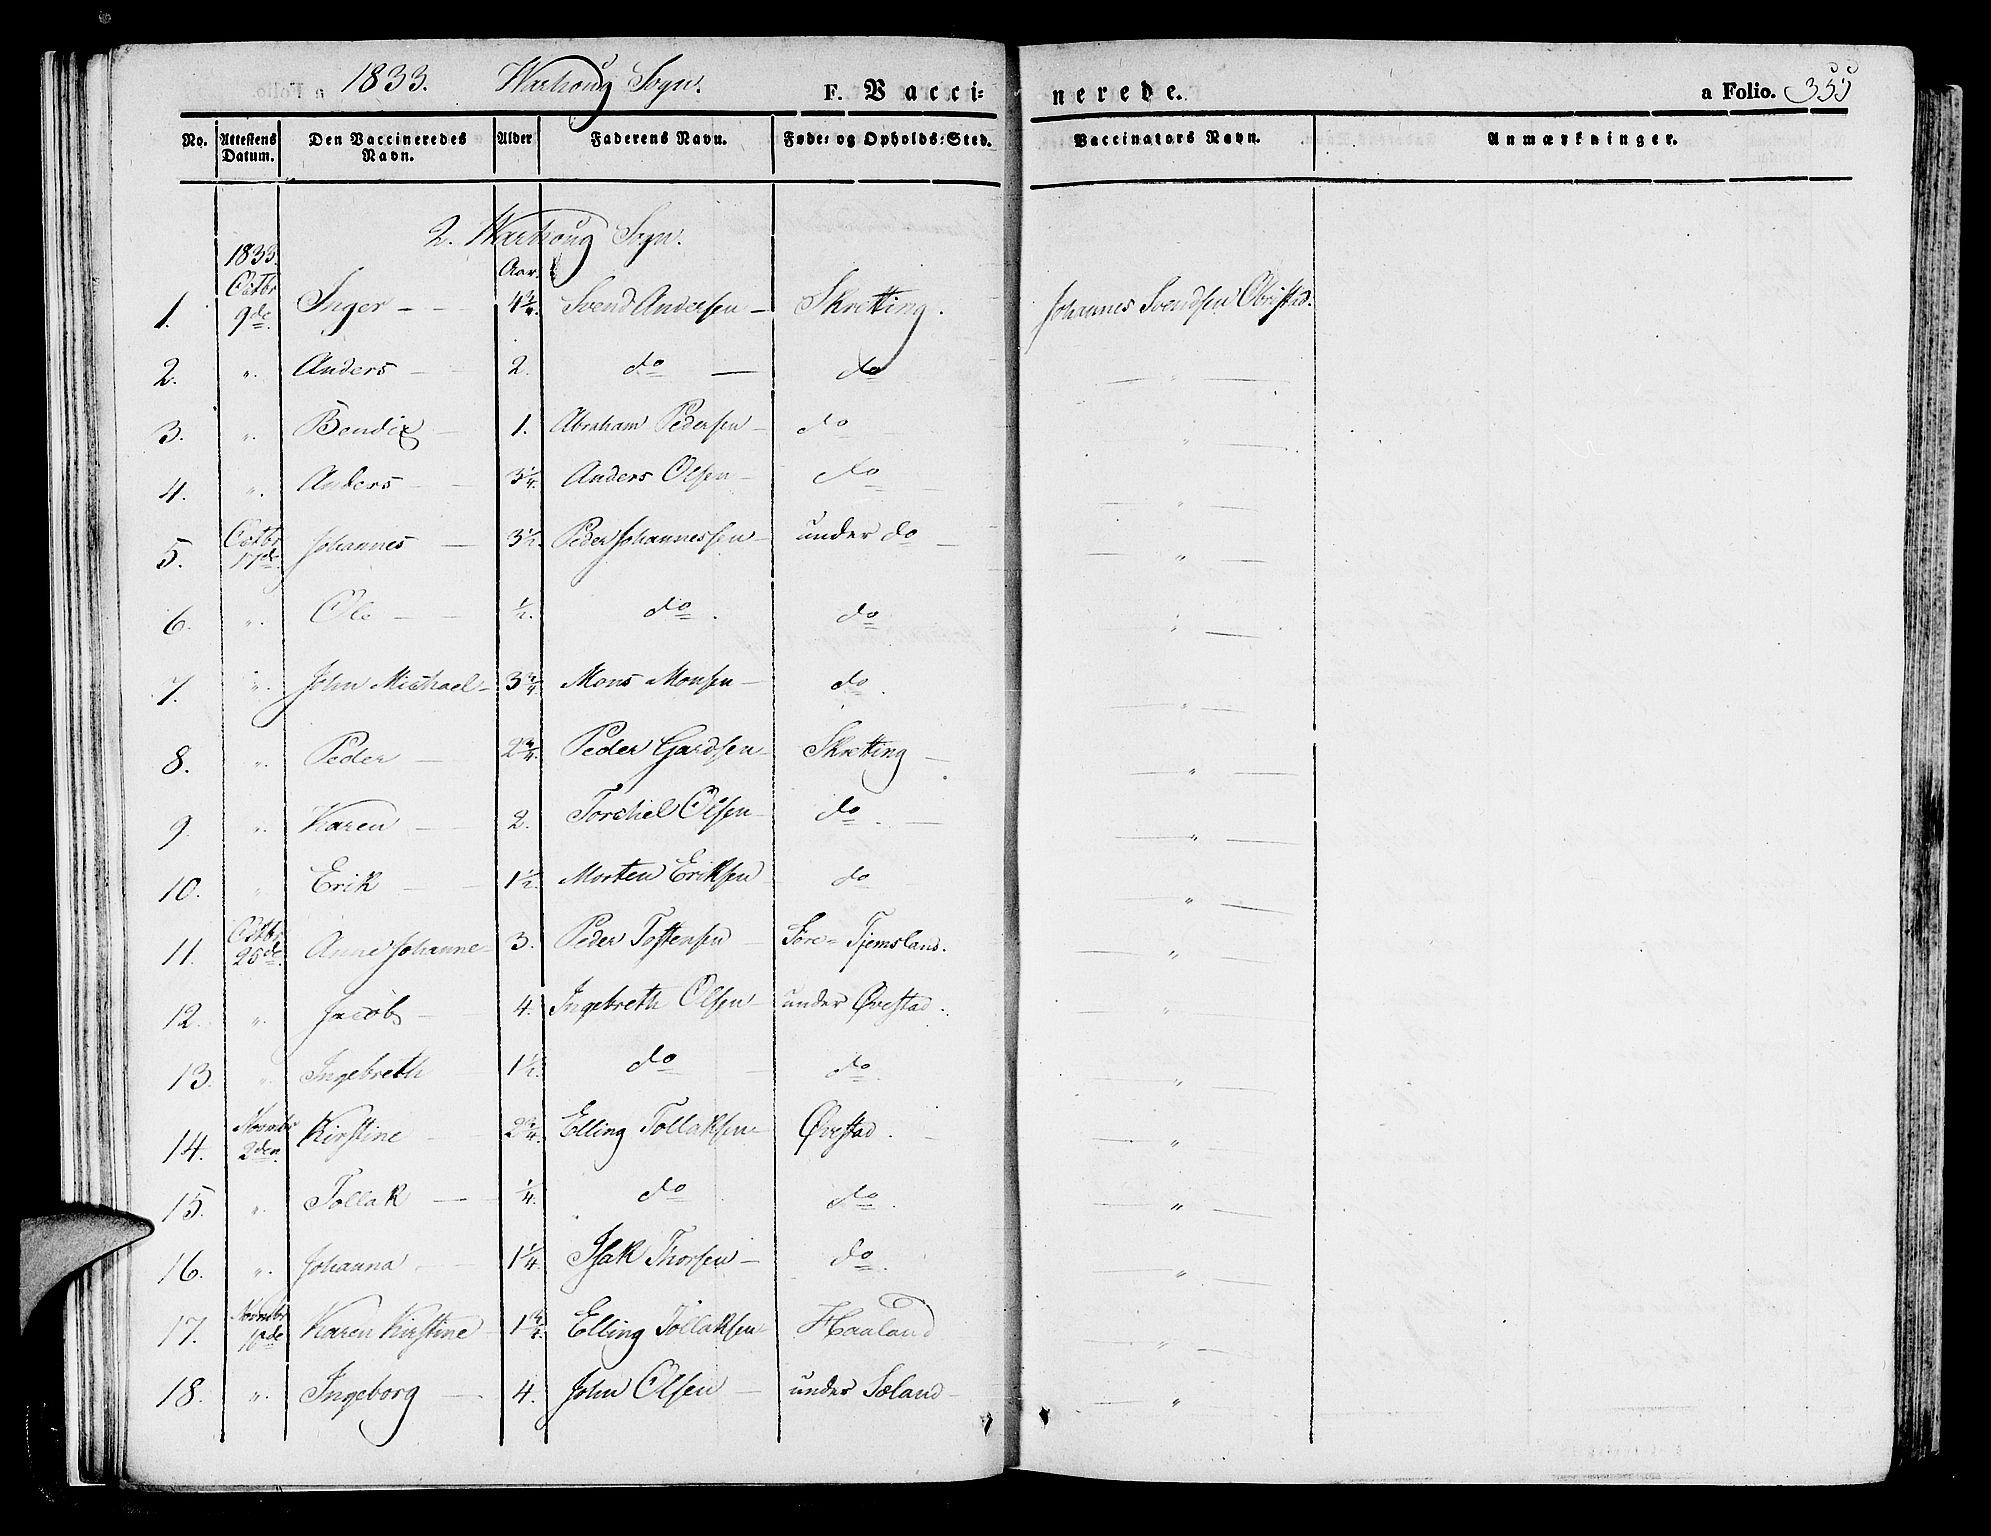 1833. Warhoug Sogn. F. Vacci= nerede. a Folio. 355
No. Attestens Datum. Den Vaccineredes Navn. Alder Faderens Navn. Føde= og Opholds=Sted. Vaccinators Navn. Anmærkninger.
2. Warhoug Sogn.
1833. Aar.
1. Octbr 9de Inger - - 4 3/4. Svend Andersen - Skretting. Johannes Svendsen Obrestad.
2. ". Anders - 2. do - do - " -
3. ". Bendix - 1. Abraham Pedersen - do - " -
4. ". Anders - 3 1/4. Anders Olsen - do - " -
5. Octbr 17de Johannes - 3 1/2. Peder Johannessen - under do - " -
6. ". Ole - 1/2. do. do - " -
7. ". John Michael - 3 3/4 Mons Monsen - do. - " -
8. ". Peder - 2 3/4. Peder Gardsen - Skretting - " -
9. ". Karen - 2. Torchel Olsen - do. - " -
10. " Erik - 1 1/2. Morten Eriksen - do - " -
11. Octbr 25de. Anne Johanne - 3. Peder Tostensen - Fore= Tjemsland. - " -
12. ". Jacob - 4. Ingebreth Olsen - under Øvestad. - " -
13. ". Ingebreth 1 1/2. do - do. - " -
14. Novmbr 2den. Kirstine - 2 3/4. Elling Tollaksen - Øvestad. - " -
15. ". Tollak - 1/4. do. do. - " -
16. ". Johanna - 1 1/4 Isak Thorsen - do. - " -
17. Novmbr 16de Karen Kirstine - 1 3/4. Elling Tollaksen - Haaland - " -
18. ". Ingeborg - 4. John Olsen - under Søland - - " -